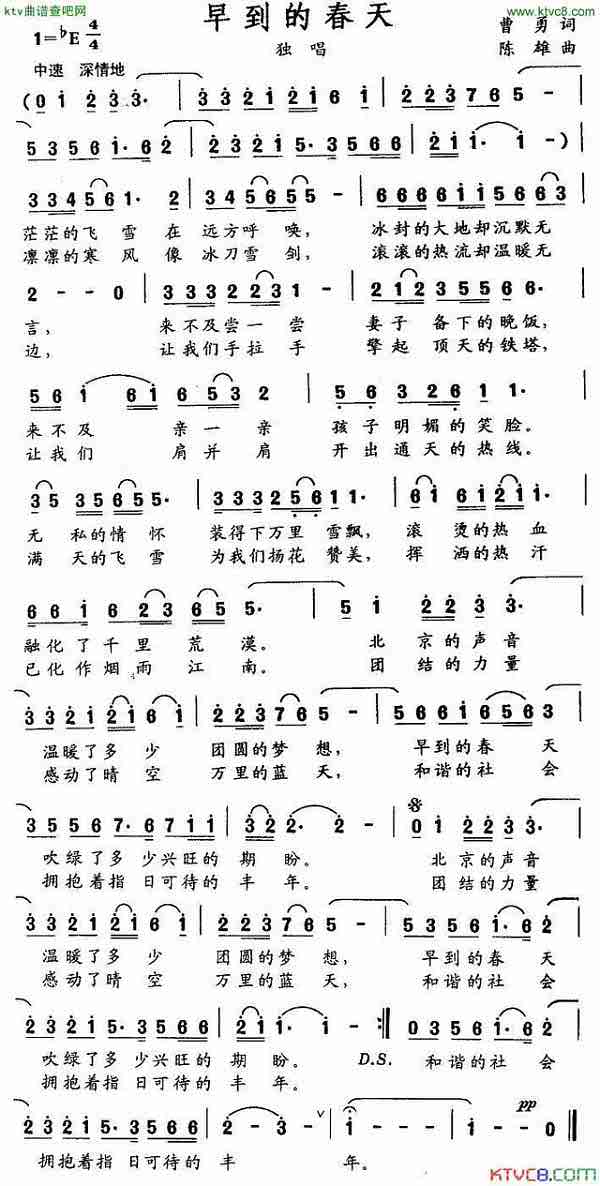 ktv曲谱查吧网
http://www.ktvc8.com
早到的春天
1=♭E 4/4
独唱
曹勇词
陈雄曲
中速 深情地
(0 1 2 3 3· | 3 3 2 1 2 1 6 1 | 2 2 2 3 7 6 5 -
5 3 5 6 1· 6 2 | 2 3 2 1 5· 3 5 6 6 | 2 1 1· 1 -)
3 3 4 5 6 1· 2 | 3 4 5 6 5 5 - | 6 6 6 6 1 1 5 6 6 3
茫茫的飞雪在远方呼唤,冰封的大地却沉默无
凛凛的寒风像冰刀雪剑,滚滚的热流却温暖无
2 - - 0 | 3 3 3 2 2 3 1 - | 2 1 2 3 5 6 6·
言,来不及尝一尝妻子备下的晚饭,
边,让我们手拉手擎起顶天的铁塔,
5 6 1 6 1 6 5 3 2 | 5 6 3 2 6 1 1·
来不及亲一亲孩子明媚的笑脸。
让我们肩并肩开出通天的热线。
3 5 3 5 6 5 5· | 3 3 3 2 5 6 1 1· | 6 1 6 1 2 1 1·
无私的情怀装得下万里雪飘,滚烫的热血
满天的飞雪为我们扬花赞美,挥洒的热汗
6 6 1 6 2 3 6 5 5· | 5 1 2 2 3 3·
融化了千里荒漠。北京的声音
已化作烟雨江南。团结的力量
3 3 2 1 2 1 6 1 | 2 2 2 3 7 6 5 - | 5 6 6 1 6 5 6 5 3
温暖了多少团圆的梦想,早到的春天
感动了晴空万里的蓝天,和谐的社会
3 5 5 6 7· 6 7 1 1 | 3 2 2· 2 - | 0 1 2 2 3 3·
吹绿了多少兴旺的期盼。北京的声音
拥抱着指日可待的丰年。团结的力量
3 3 2 1 2 1 6 1 | 2 2 2 3 7 6 5 - | 0 3 5 6 1· 6 2
温暖了多少团圆的梦想,早到的春天
感动了晴空万里的蓝天,和谐的社会
2 3 2 1 5· 3 5 6 6 | 2 1 1· 1 - :‖ 0 3 5 6 1· 6 2
吹绿了多少兴旺的期盼。D.S. 和谐的社会
拥抱着指日可待的丰年。
pp
2 3 2 1 5· 3 5 6 6 | 2 - 2 - 3 - | 1 - - - | 1 - - 0 ‖
拥抱着指日可待的丰年。
KTVC8.com